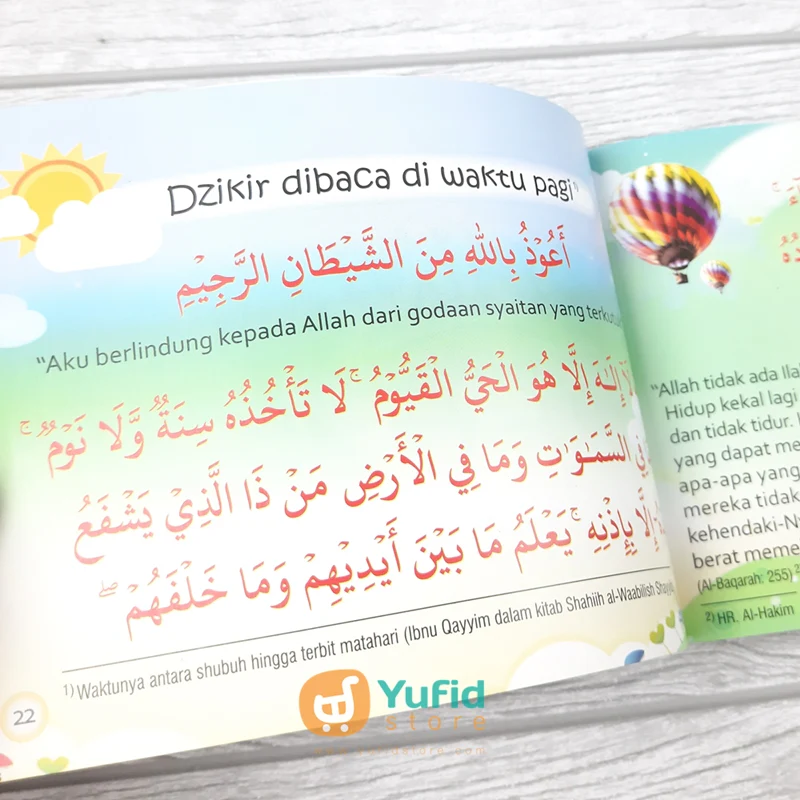 Dzikir dibaca di waktu pagi¹⁾
أَعُوْذُ بِاللهِ مِنَ الشَّيْطَانِ الرَّجِيْمِ
"Aku berlindung kepada Allah dari godaan syaitan yang
إِلَـٰهَ إِلَّا هُوَ الْحَيُّ الْقَيُّوْمُ ۚ لَا تَأْخُذُهُ سِنَةٌ وَّلَا نَوْمٌ ۚ
السَّمَـٰوَاتِ وَمَا فِي الْأَرْضِ مَنْ ذَا الَّذِيْ يَشْفَعُ
إِلَّا بِإِذْنِهِ ۚ يَعْلَمُ مَا بَيْنَ أَيْدِيْهِمْ وَمَا خَلْفَهُمْ ۖ
¹⁾ Waktunya antara shubuh hingga terbit matahari (Ibnu Qayyim dalam kitab Shahiih al-Waabilish
22
"Allah tidak ada
Hidup kekal lagi
dan tidak tidur.
yang dapat
apa-apa yang
mereka tidak
kehendaki
berat
(Al-Baqarah: 255)
²⁾ HR. Al-Hakim
Yufid
store